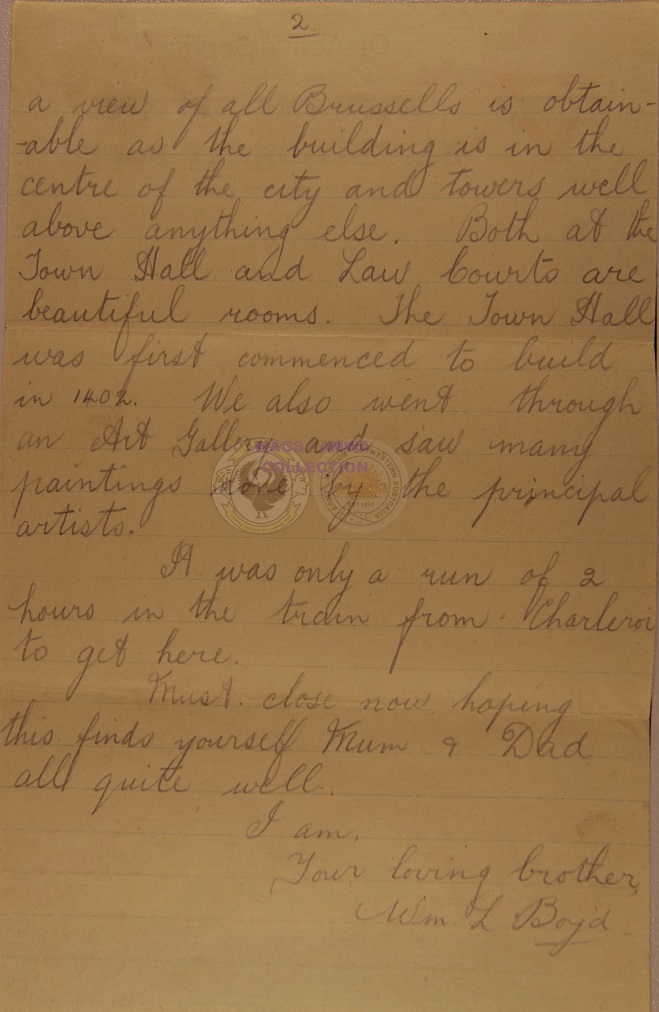 2
a view of all Brussells is obtain-
-able as the building is in the
centre of the city and towers well
above anything else. Both at the
Town Hall and Law Courts are
beautiful rooms. The Town Hall
was first commenced to build
in 1402. We also went through
an Art Gallery and saw many
paintings done by the principal
artists.
It was only a run of 2
hours in the train from Charleroi
to get here.
Must close now hoping
this finds yourself Mum & Dad
all quite well.
I am,
Your loving brother,
Wm L Boyd
RAGS
COLLECTION